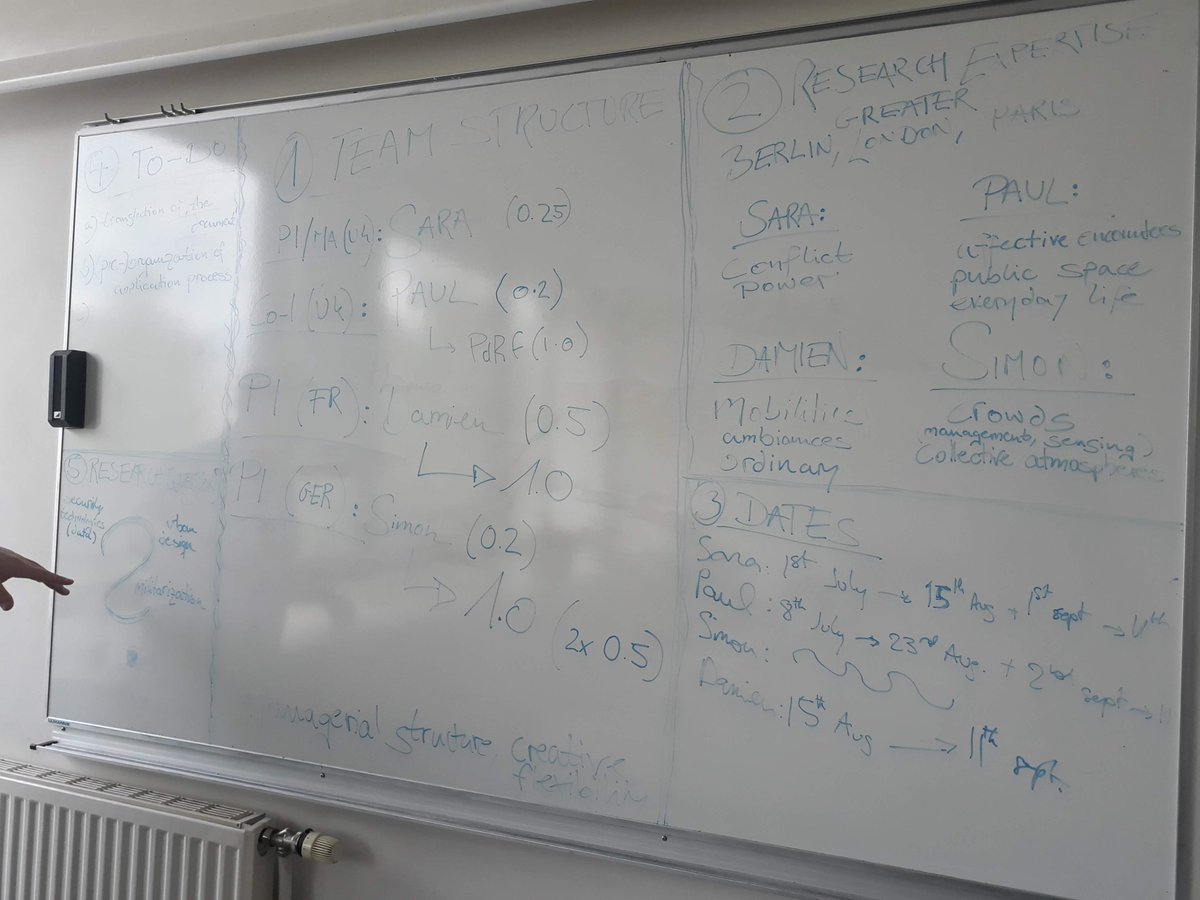 ① TEAM STRUCTURE
PI/MA (UK): SARA (0.25)
Co-I (UK): PAUL (0.2)
↳ PdRF (1.0)
PI (FR): Damien (0.5)
↳ 1.0
PI (GER): Simon (0.2)
→ 1.0
(2x 0.5)
managerial structure, creative
flexibility
② RESEARCH EXPERTISE
GREATER
BERLIN, LONDON, PARIS
SARA:
Conflict
power
PAUL:
affective encounters
public space
everyday life
DAMIEN:
Mobilities
ambiances
ordinary
SIMON:
crowds
(management, sensing)
Collective atmospheres
③ DATES
Sara: 1st July → 15th Aug + 1st sept →
Paul: 8th July → 23rd Aug. + 2nd sept → 11
Simon:
Damien: 15th Aug → 11th sept.
④ TO-DO
a) translation of the
document
b) pre-organization of
application process
c)
⑤ RESEARCH QUESTION
security
technologies
(data)
urban
design
?
militarization